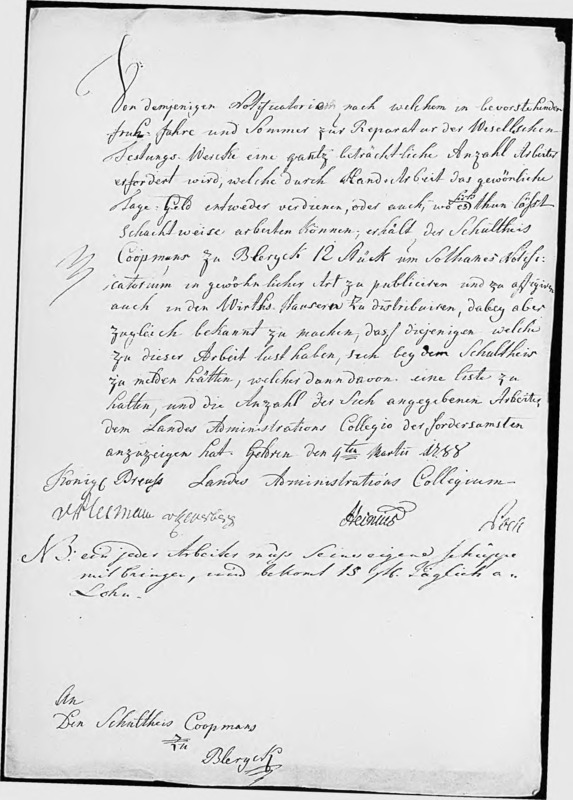 Von demjenigen Notificatorio, nach welchem in bevorstehenden
früh-Jahre und Sommer zur Reparatur der Weselschen
Festungs-Wercke eine gantz beträchtliche Anzahl Arbeiter
erfordert wird, welche durch Hand-Arbeit das gewöhnliche
Tage-Geld entweder verdienen, oder auch, wo es sich thun läßt
Schacht weise arbeiten können; erhält der Schultheis
Coopmans zu Bleryck 12 Stück um Sothanes Notifi-
icatorium in gewöhnlicher Art zu publiciren und zu affigiren
auch in den Wirths-Häusern zu distribuiren, dabey aber
zugleich bekannt zu machen, dass diejenigen welche
zu dieser Arbeit lust haben, sich bey dem Schultheis
zu melden hätten, welcher dann davon eine liste zu
halten, und die Anzahl der Sich angegebenen Arbeiter,
dem Landes Administrations Collegio der fordersamsten
anzuzeigen hat. Geldren den 4ten Martii 1788
Königl Preuss Landes Administrations Collegium
Heinius
NB: ein jeder Arbeiter muss Seine eigene schüppe
mitbringen, und bekomt 15 st. Täglich a.
Lohn.
An
Den Schultheis Coopmans
zu
Bleryck